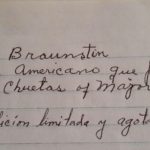 Braunstin
Americano que
Chuetas of Major
icion limitada y agot